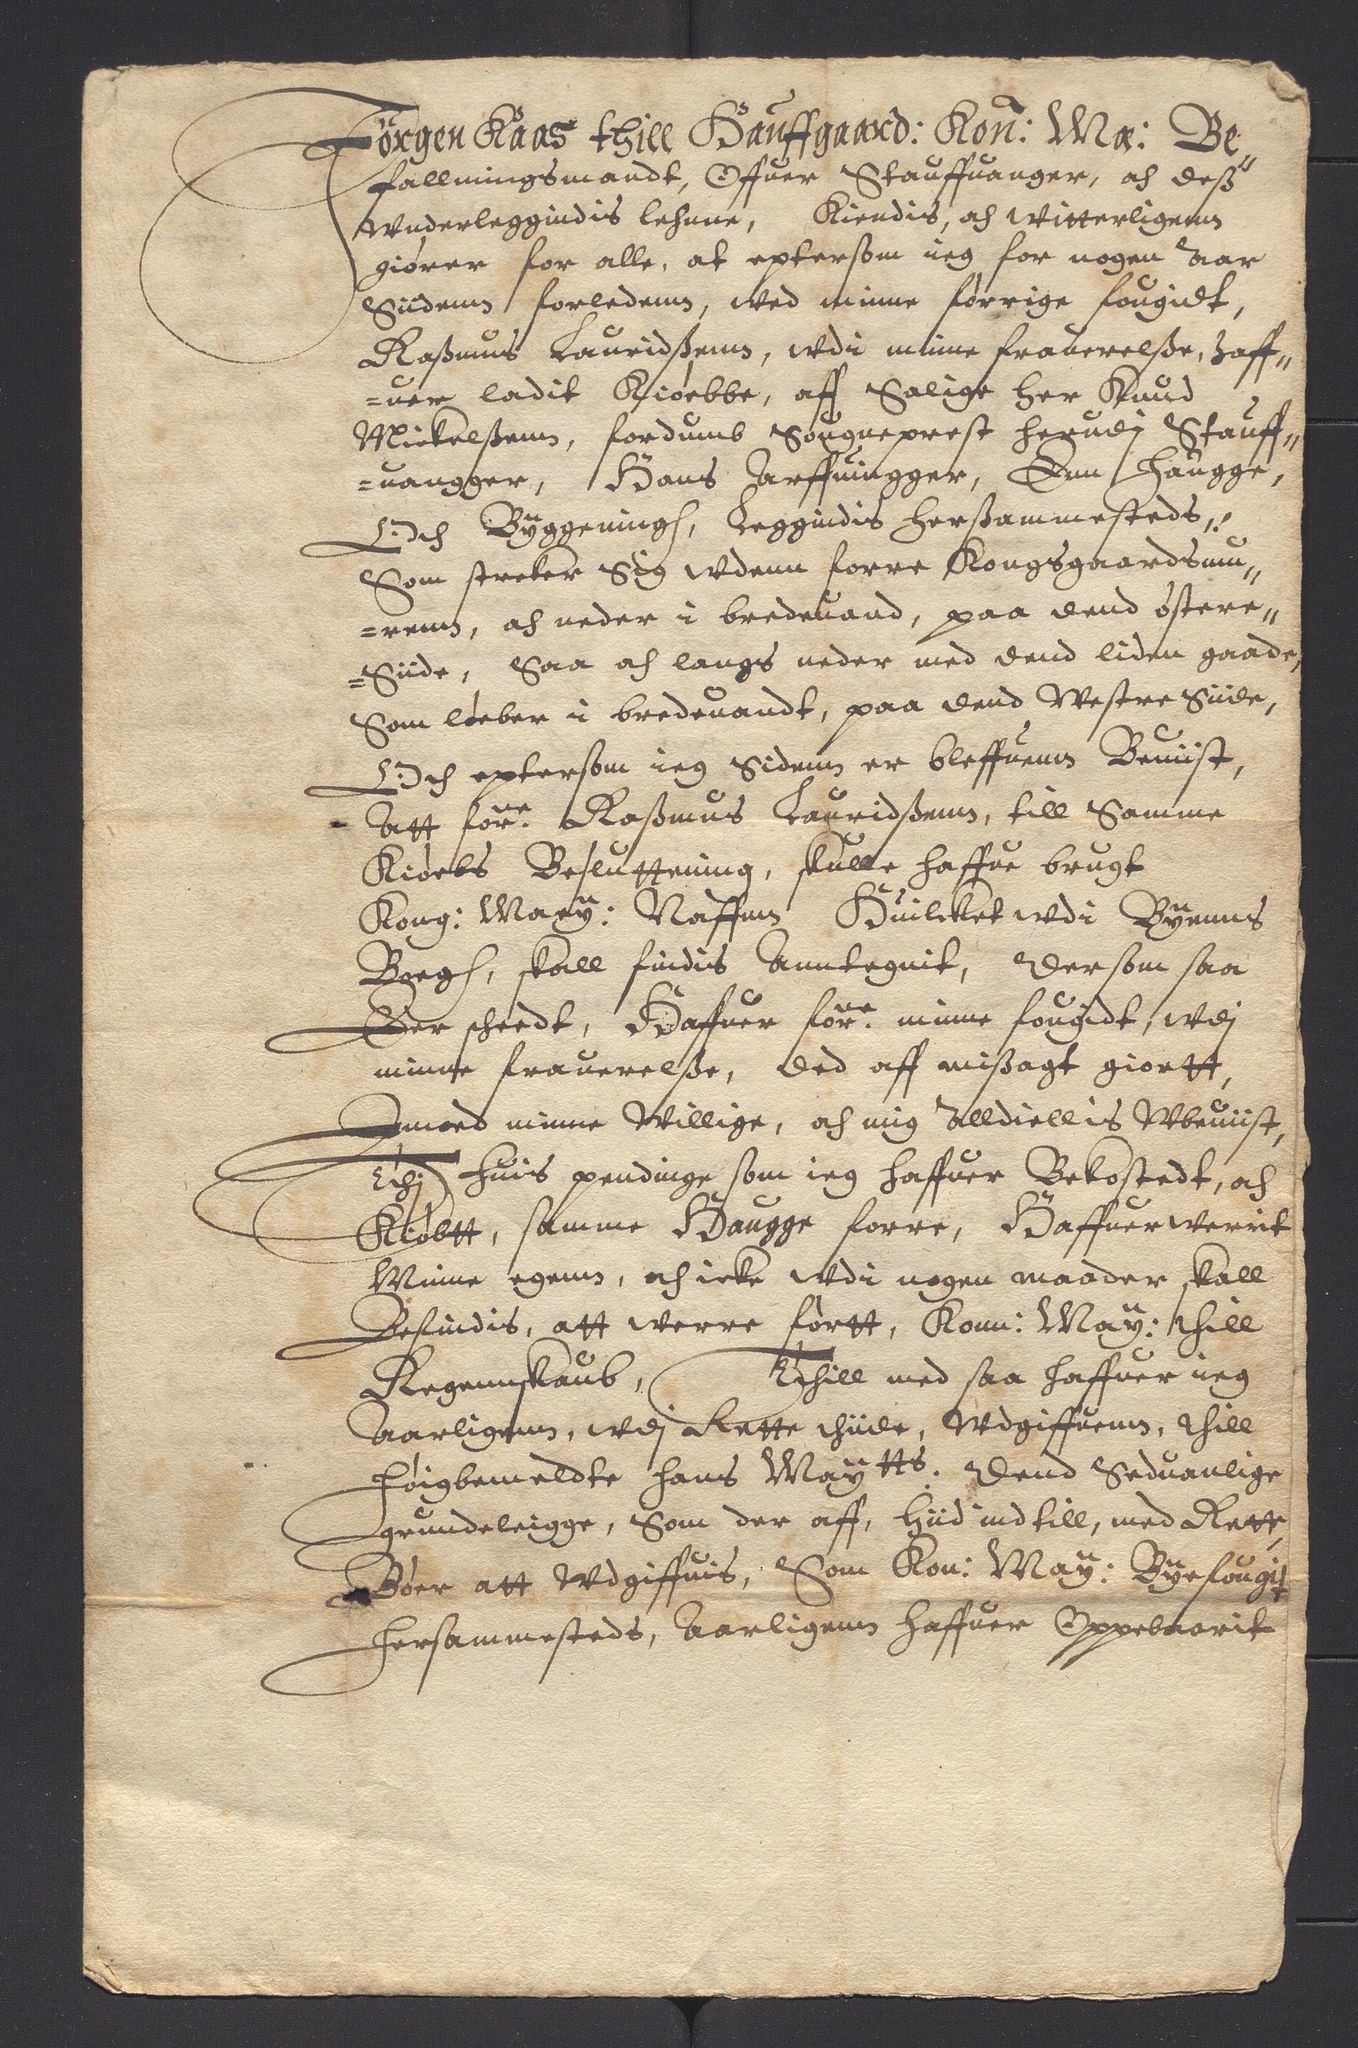 Jörgen Kaas thill Hauffgaard: Kon: Ma: Be¸
fallningsmandt, Offuer Stauffuanger, och deß
Wnderleggindis lehnne, Kiendis, och Witterligenn
giører for alle, at epterßom ieg for nogen Aar
Siidenn forledenn, wed minne førrige fougidt,
Raßmus Lauridßenn, wdi minne frauerelße, haff„
=uer ladit Kiøebbe, aff Salige her Knud
Mickelßenn, fordumb Sougneprest herudj Stauff„
=uangger, Hans Arffuingger, Enn Haugge,
Och Byggeningh, Leggindis herßammesteds,
Som streker Sig wdenn forre Kongsgaardsmu„
=renn, och neder i bredeuand, paa dend østere„
=Siide, Saa och langs neder med dend liden gaade,
Som løeber i bredeuandt, paa dend Westre Siide,
Och epterßom ieg Sidenn er bleffuenn Beuiist,
Att førne. Raßmus Lauridßenn, till Samme
Kiøebs Besluttening, skulle haffue brugt
Kong: Mayy: Naffnn Huilcket wdi Byenns
Boegh, skall findis Anntegnit, Dersom saa
Ehr scheedt, Haffuer førne. minne fougidt, wdj
minne frauerelße, ded aff mißagt giortt,
Imoed minne Willige, och mig Alldiellis Wbeuiist,
Thj huis pendinge som ieg haffuer Bekostedt, och
Kiøbtt, samme Haugge forre, Haffuer werrit
Minne egenn, och icke wdi nogen maader skall
Befindis, att werre førtt, Konn: May: thill
Regennskaub, Thill med saa haffuer ieg
Aarligenn, wdj Rette thiide, Wdgiffuenn, thill
Høigbemeldte hans Maytts. Dend Seduanlige
grundeleigge, Som der aff, hiid indtill, med Rette,
Bøer att Wdgiffuis, Som Kon: May: Byefougit
hersammesteds, Aarligenn haffuer Oppebaarit